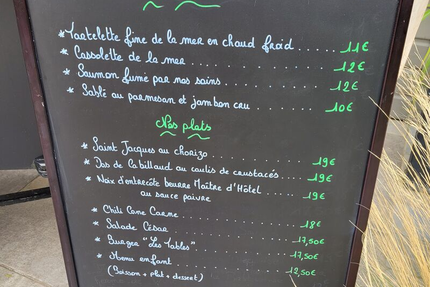 * Tartelette fine de la mer en chaud froid ..... 11€
* Cassolette de la mer ..... 12€
* Saumon fumé par nos soins ..... 12€
* Sablé au parmesan et jambon cru ..... 10€
Nos plats
* Saint Jacques au chorizo ..... 19€
* Dos de Cabillaud au coulis de crustacés ..... 19€
* Noix d'entrecôte beurre Maître d'Hôtel ..... 19€
ou sauce poivre
* Chili Cone Carme ..... 18€
* Salade César ..... 17,50€
* Burger "Les Tables" ..... 17,50€
* Menu enfant ..... 12,50€
(Boisson + plat + dessert)